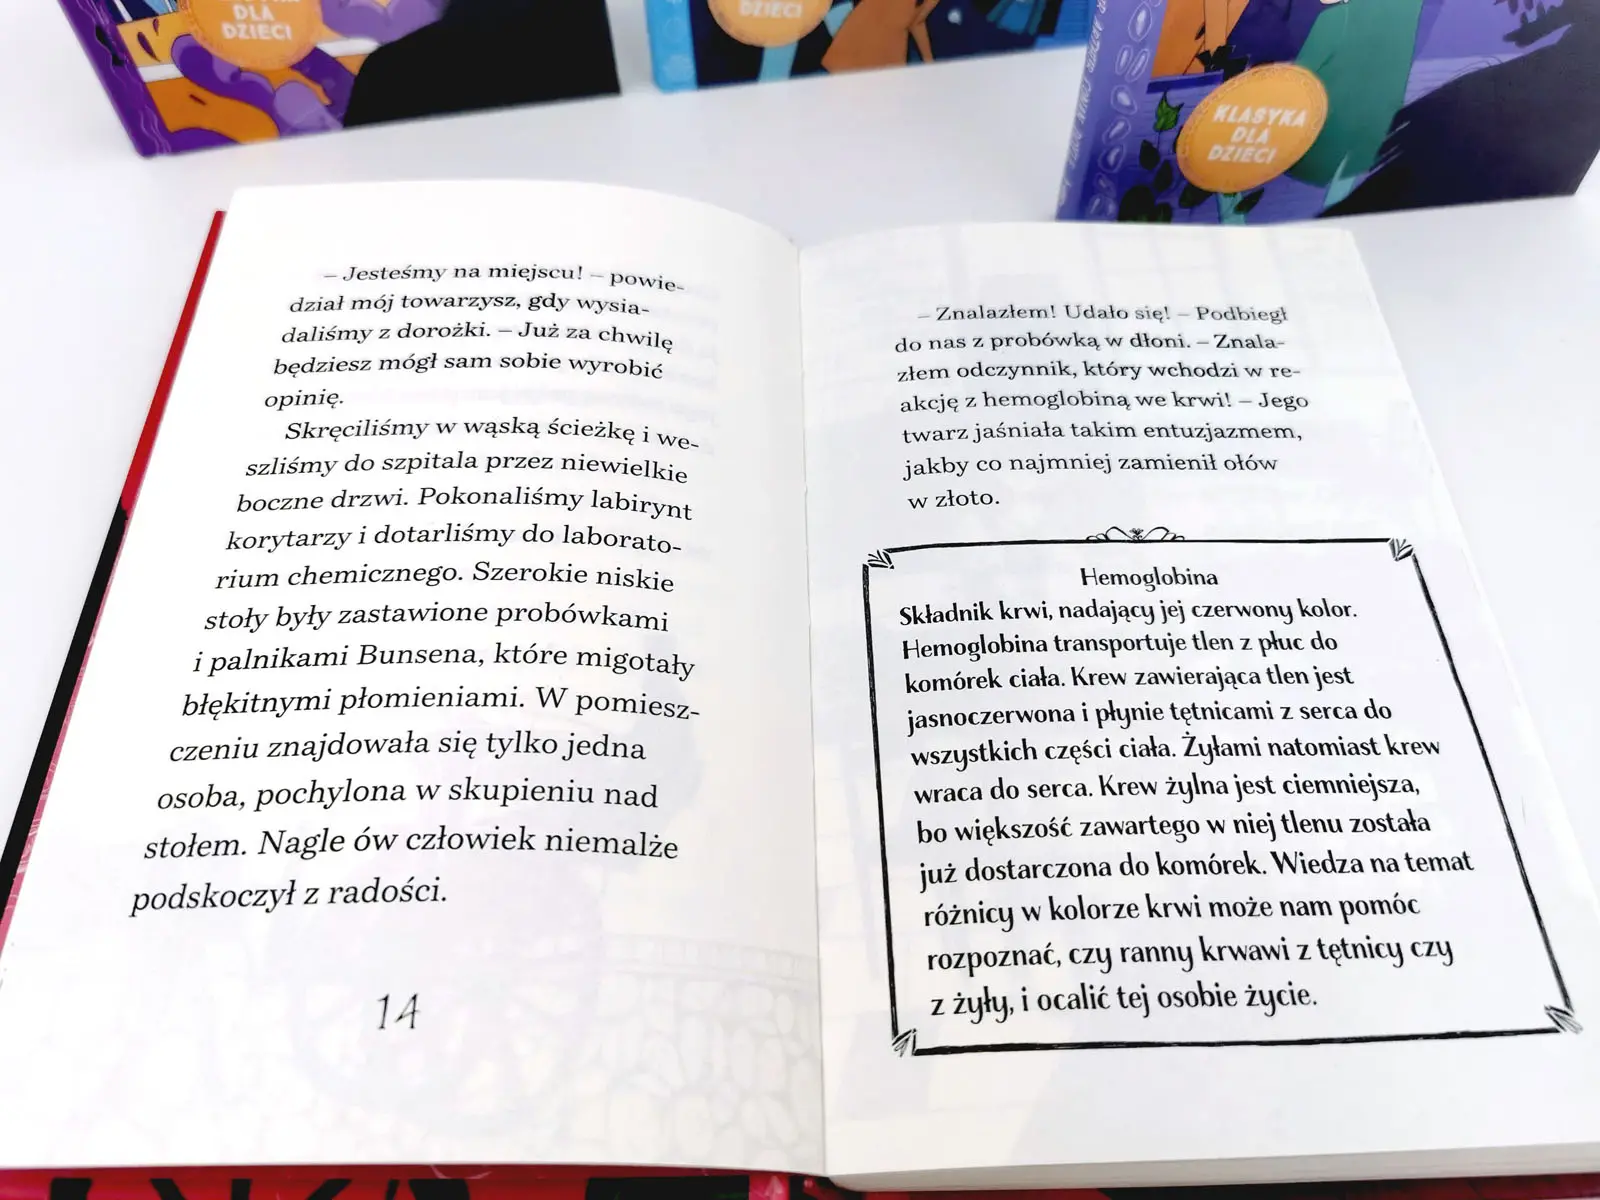 DLA
DZIECI
DZIECI
KLASYKA
DLA
DZIECI
– Jesteśmy na miejscu! – powie-
dział mój towarzysz, gdy wysia-
daliśmy z dorożki. – Już za chwilę
będziesz mógł sam sobie wyrobić
opinię.
Skręciliśmy w wąską ścieżkę i we-
szliśmy do szpitala przez niewielkie
boczne drzwi. Pokonaliśmy labirynt
korytarzy i dotarliśmy do laborato-
rium chemicznego. Szerokie niskie
stoły były zastawione probówkami
i palnikami Bunsena, które migotały
błękitnymi płomieniami. W pomiesz-
czeniu znajdowała się tylko jedna
osoba, pochylona w skupieniu nad
stołem. Nagle ów człowiek niemalże
podskoczył z radości.
14
– Znalazłem! Udało się! – Podbiegł
do nas z probówką w dłoni. – Znala-
złem odczynnik, który wchodzi w re-
akcję z hemoglobiną we krwi! – Jego
twarz jaśniała takim entuzjazmem,
jakby co najmniej zamienił ołów
w złoto.
Hemoglobina
Składnik krwi, nadający jej czerwony kolor.
Hemoglobina transportuje tlen z płuc do
komórek ciała. Krew zawierająca tlen jest
jasnoczerwona i płynie tętnicami z serca do
wszystkich części ciała. Żyłami natomiast krew
wraca do serca. Krew żylna jest ciemniejsza,
bo większość zawartego w niej tlenu została
już dostarczona do komórek. Wiedza na temat
różnicy w kolorze krwi może nam pomóc
rozpoznać, czy ranny krwawi z tętnicy czy
z żyły, i ocalić tej osobie życie.